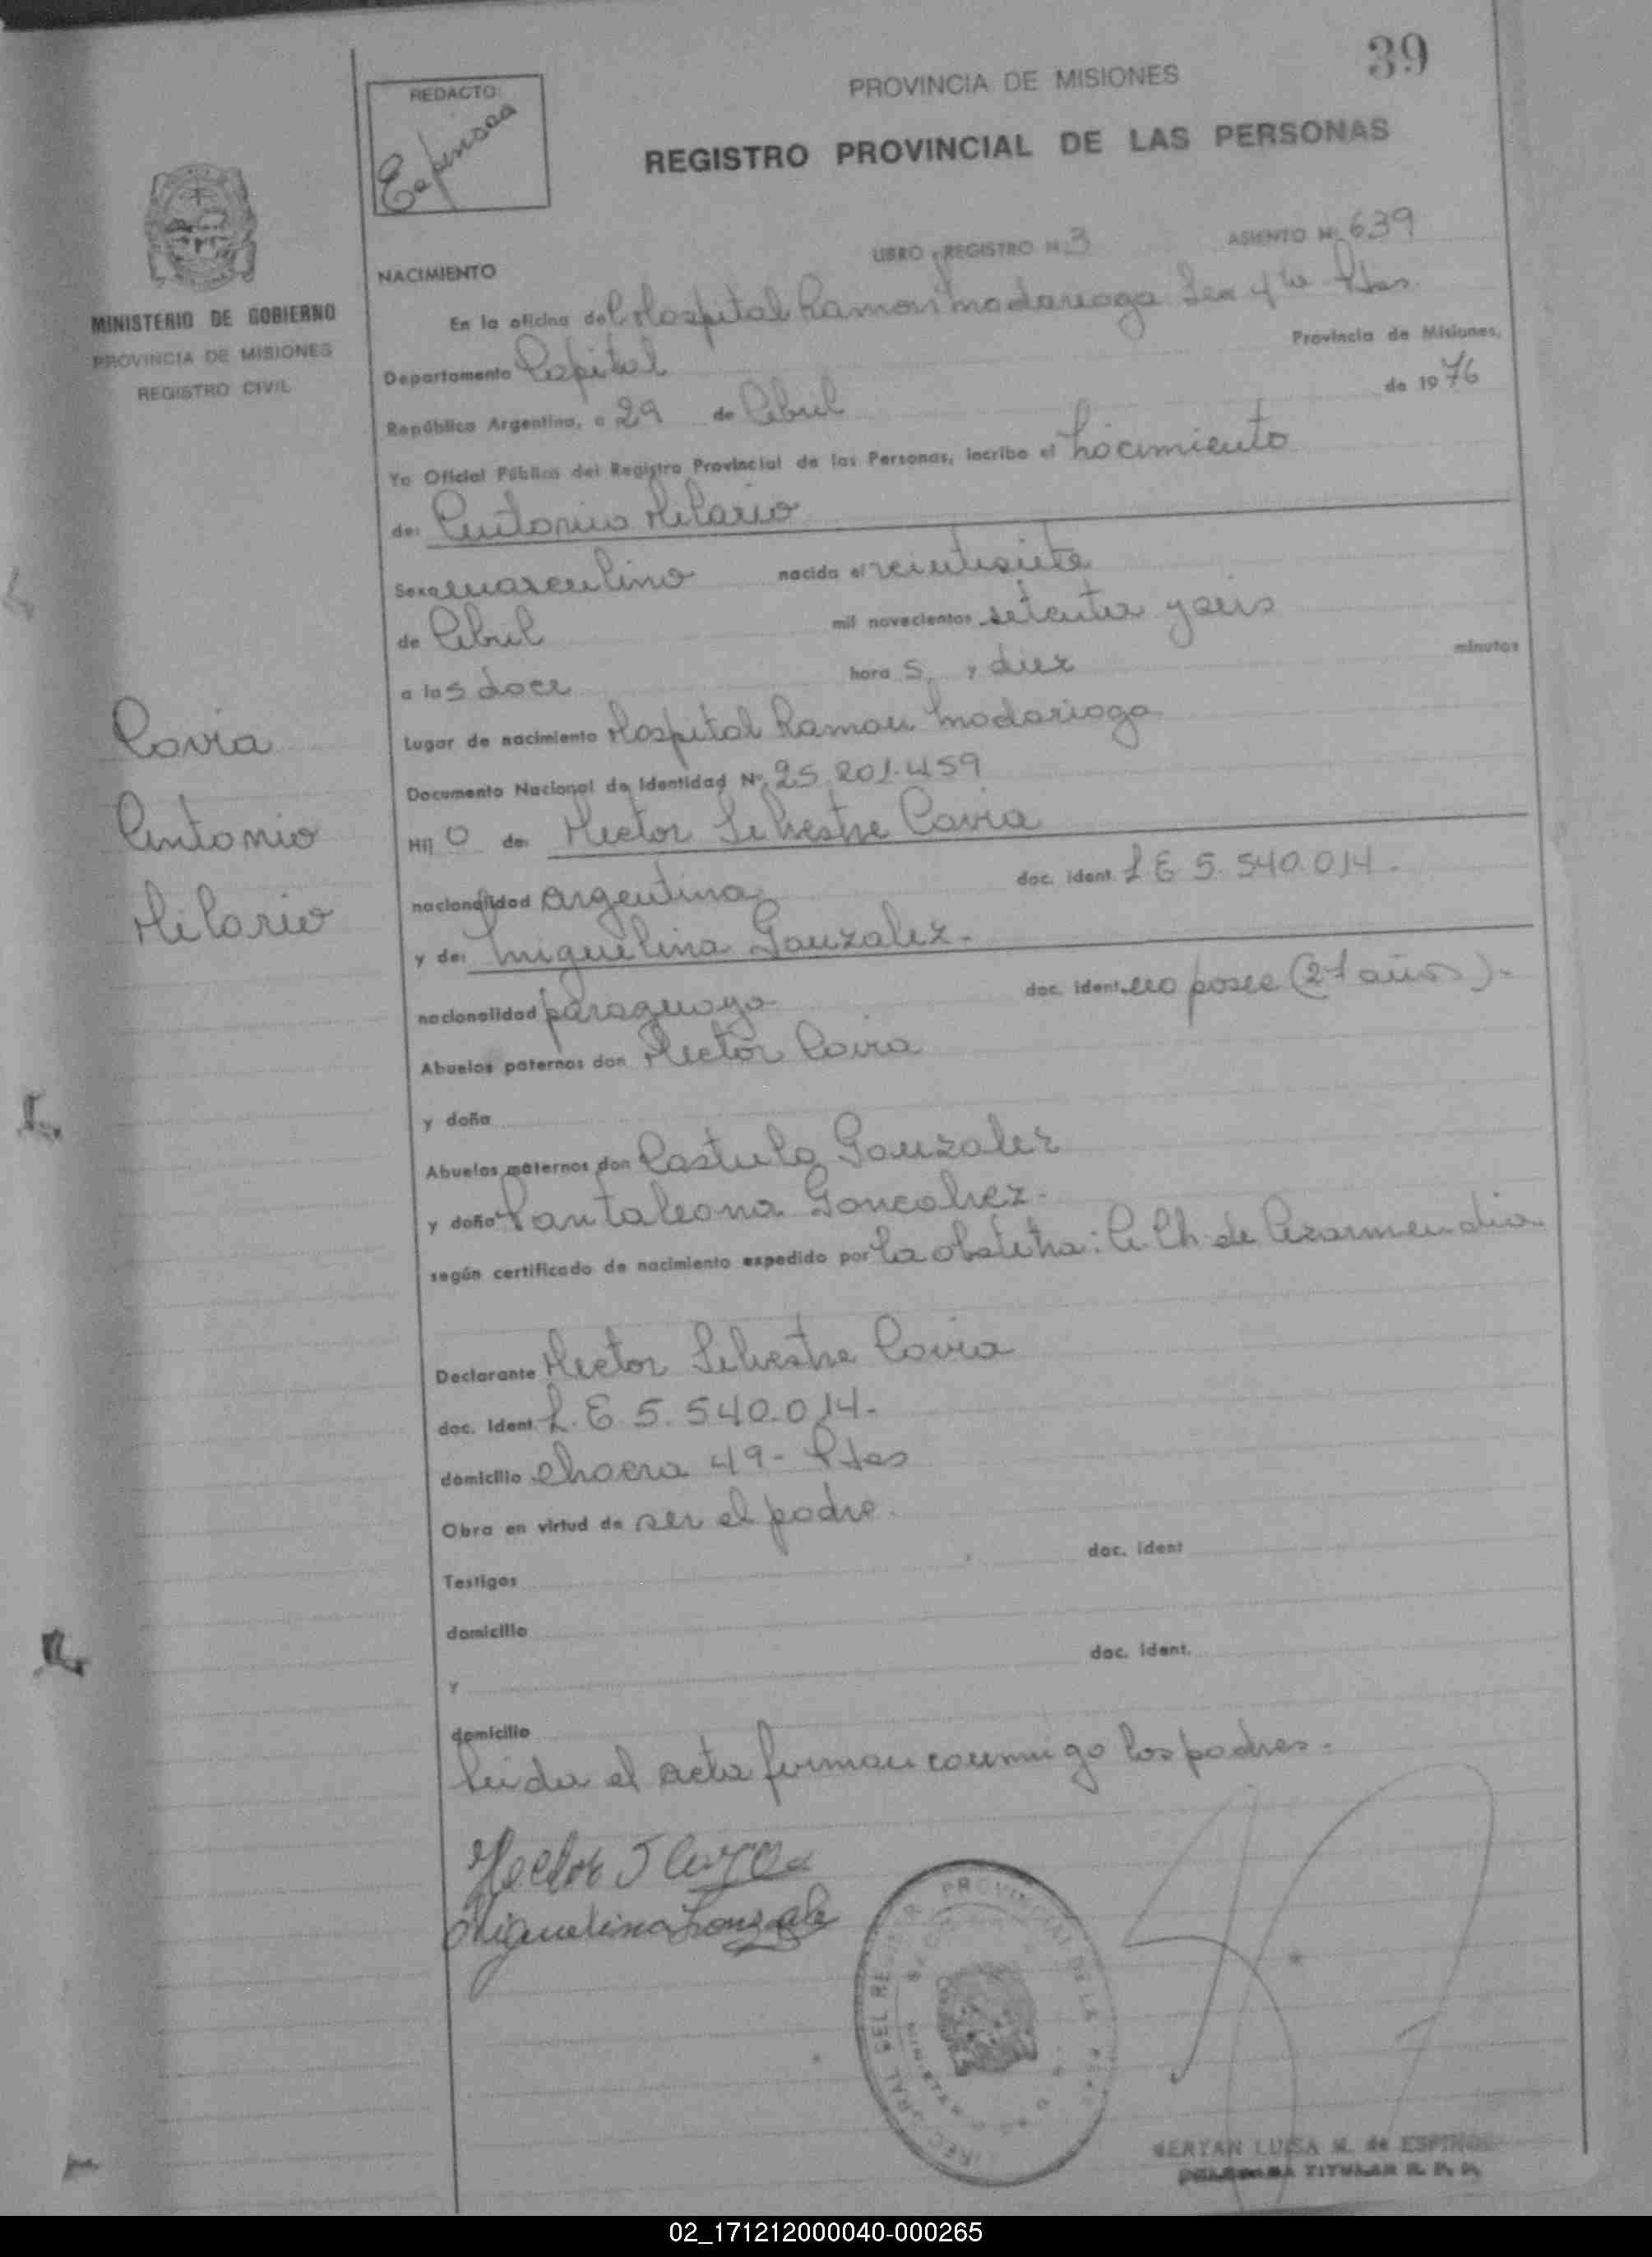 39
REDACTO:
Espinosa
PROVINCIA DE MISIONES
REGISTRO PROVINCIAL DE LAS PERSONAS
MINISTERIO DE GOBIERNO
PROVINCIA DE MISIONES
REGISTRO CIVIL
LIBRO REGISTRO N. 3 ASIENTO N. 639
NACIMIENTO
En la oficina del Hospital Ramon Madariaga
Provincia de Misiones,
Departamento Capital
República Argentina, a 29 de Abril de 1976
Yo Oficial Público del Registro Provincial de las Personas, incribo el nacimiento
de: Antonio Hilario
Sexo masculino nacido el veintisiete
de Abril mil novecientos setenta y seis
a las doce hora s, y diez minutos
Lugar de nacimiento Hospital Ramon Madariaga
Documento Nacional de Identidad Nº 25.201.459
Hij o de: Hector Silvestre Cavia
nacionalidad argentina doc. ident. L E 5.540.014.-
y de: Miguelina Gonzalez.-
nacionalidad paraguaya- doc. ident. no posee (21 años).-
Abuelos paternos don Hector Cavia
y doña
Abuelos maternos don Castulo Gonzalez
y doña Pantaleona Goncalvez.-
según certificado de nacimiento expedido por la obstetra: A. Ch. de Azarmendia
Cavia
Antonio
Hilario
Declarante Hector Silvestre Cavia
doc. Ident. L.E 5.540.014.-
domicilio chacra 49- Pdas
Obra en virtud de ser el padre.
Testigos doc. ident
domicilio
y doc. ident.
domicilio
leida el acta firman conmigo los padres.-
Hector S Cavia
Miguelina Gonzale
PROVINCIAL DE LA
DEL RE
BERTAN LUISA M. de ESPINOSA
DELEGADA TITULAR R. P. P.
02_171212000040-000265